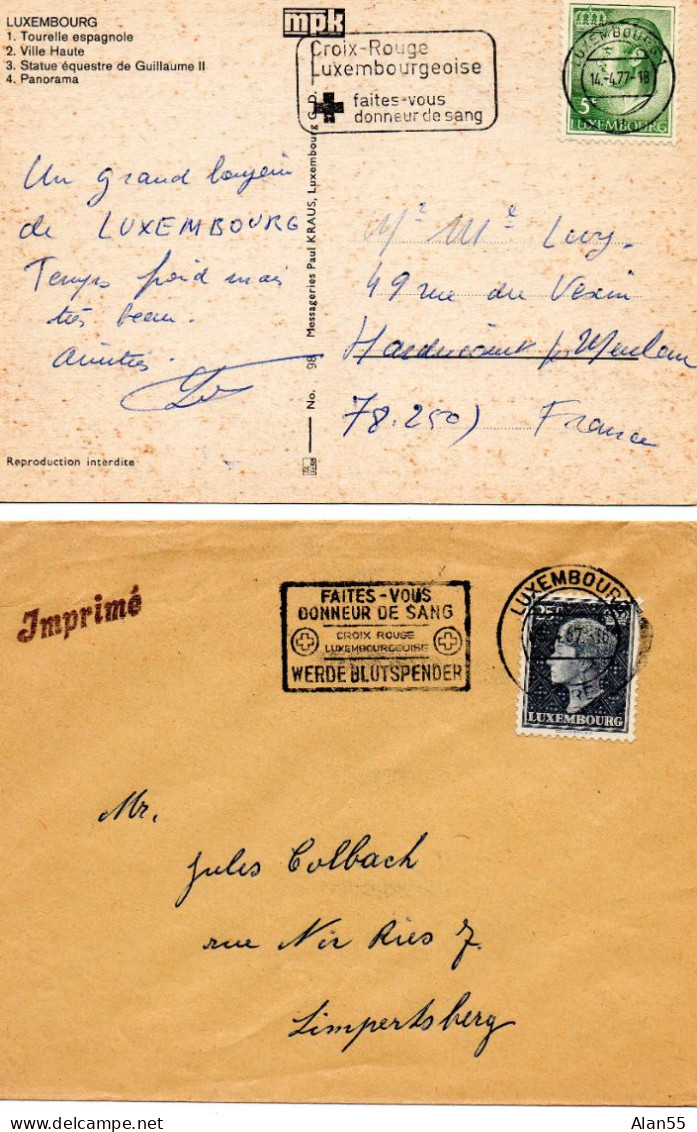 LUXEMBOURG
1. Tourelle espagnole
2. Ville Haute
3. Statue équestre de Guillaume II
4. Panorama
mpk
Croix-Rouge
Luxembourgeoise
faites-vous
donneur de sang
LUXEMBOURG 1
14.-4.77-18
5F
LUXEMBOURG
Un grand bonjour
de LUXEMBOURG
Temps froid mais
très beau.
Amitiés.
Reproduction interdite
No. 98 Messageries Paul KRAUS, Luxembourg G.D.
Mr Mle Levy.
49 rue du Vexin
Hardricourt par Meulan
78.250) France
Imprimé
FAITES-VOUS
DONNEUR DE SANG
CROIX ROUGE
LUXEMBOURGEOISE
WERDE BLUTSPENDER
LUXEMBOURG
LUXEMBOURG
Mr.
Jules Colbach
rue Nic Ries 7.
Limpertsberg
Alan55